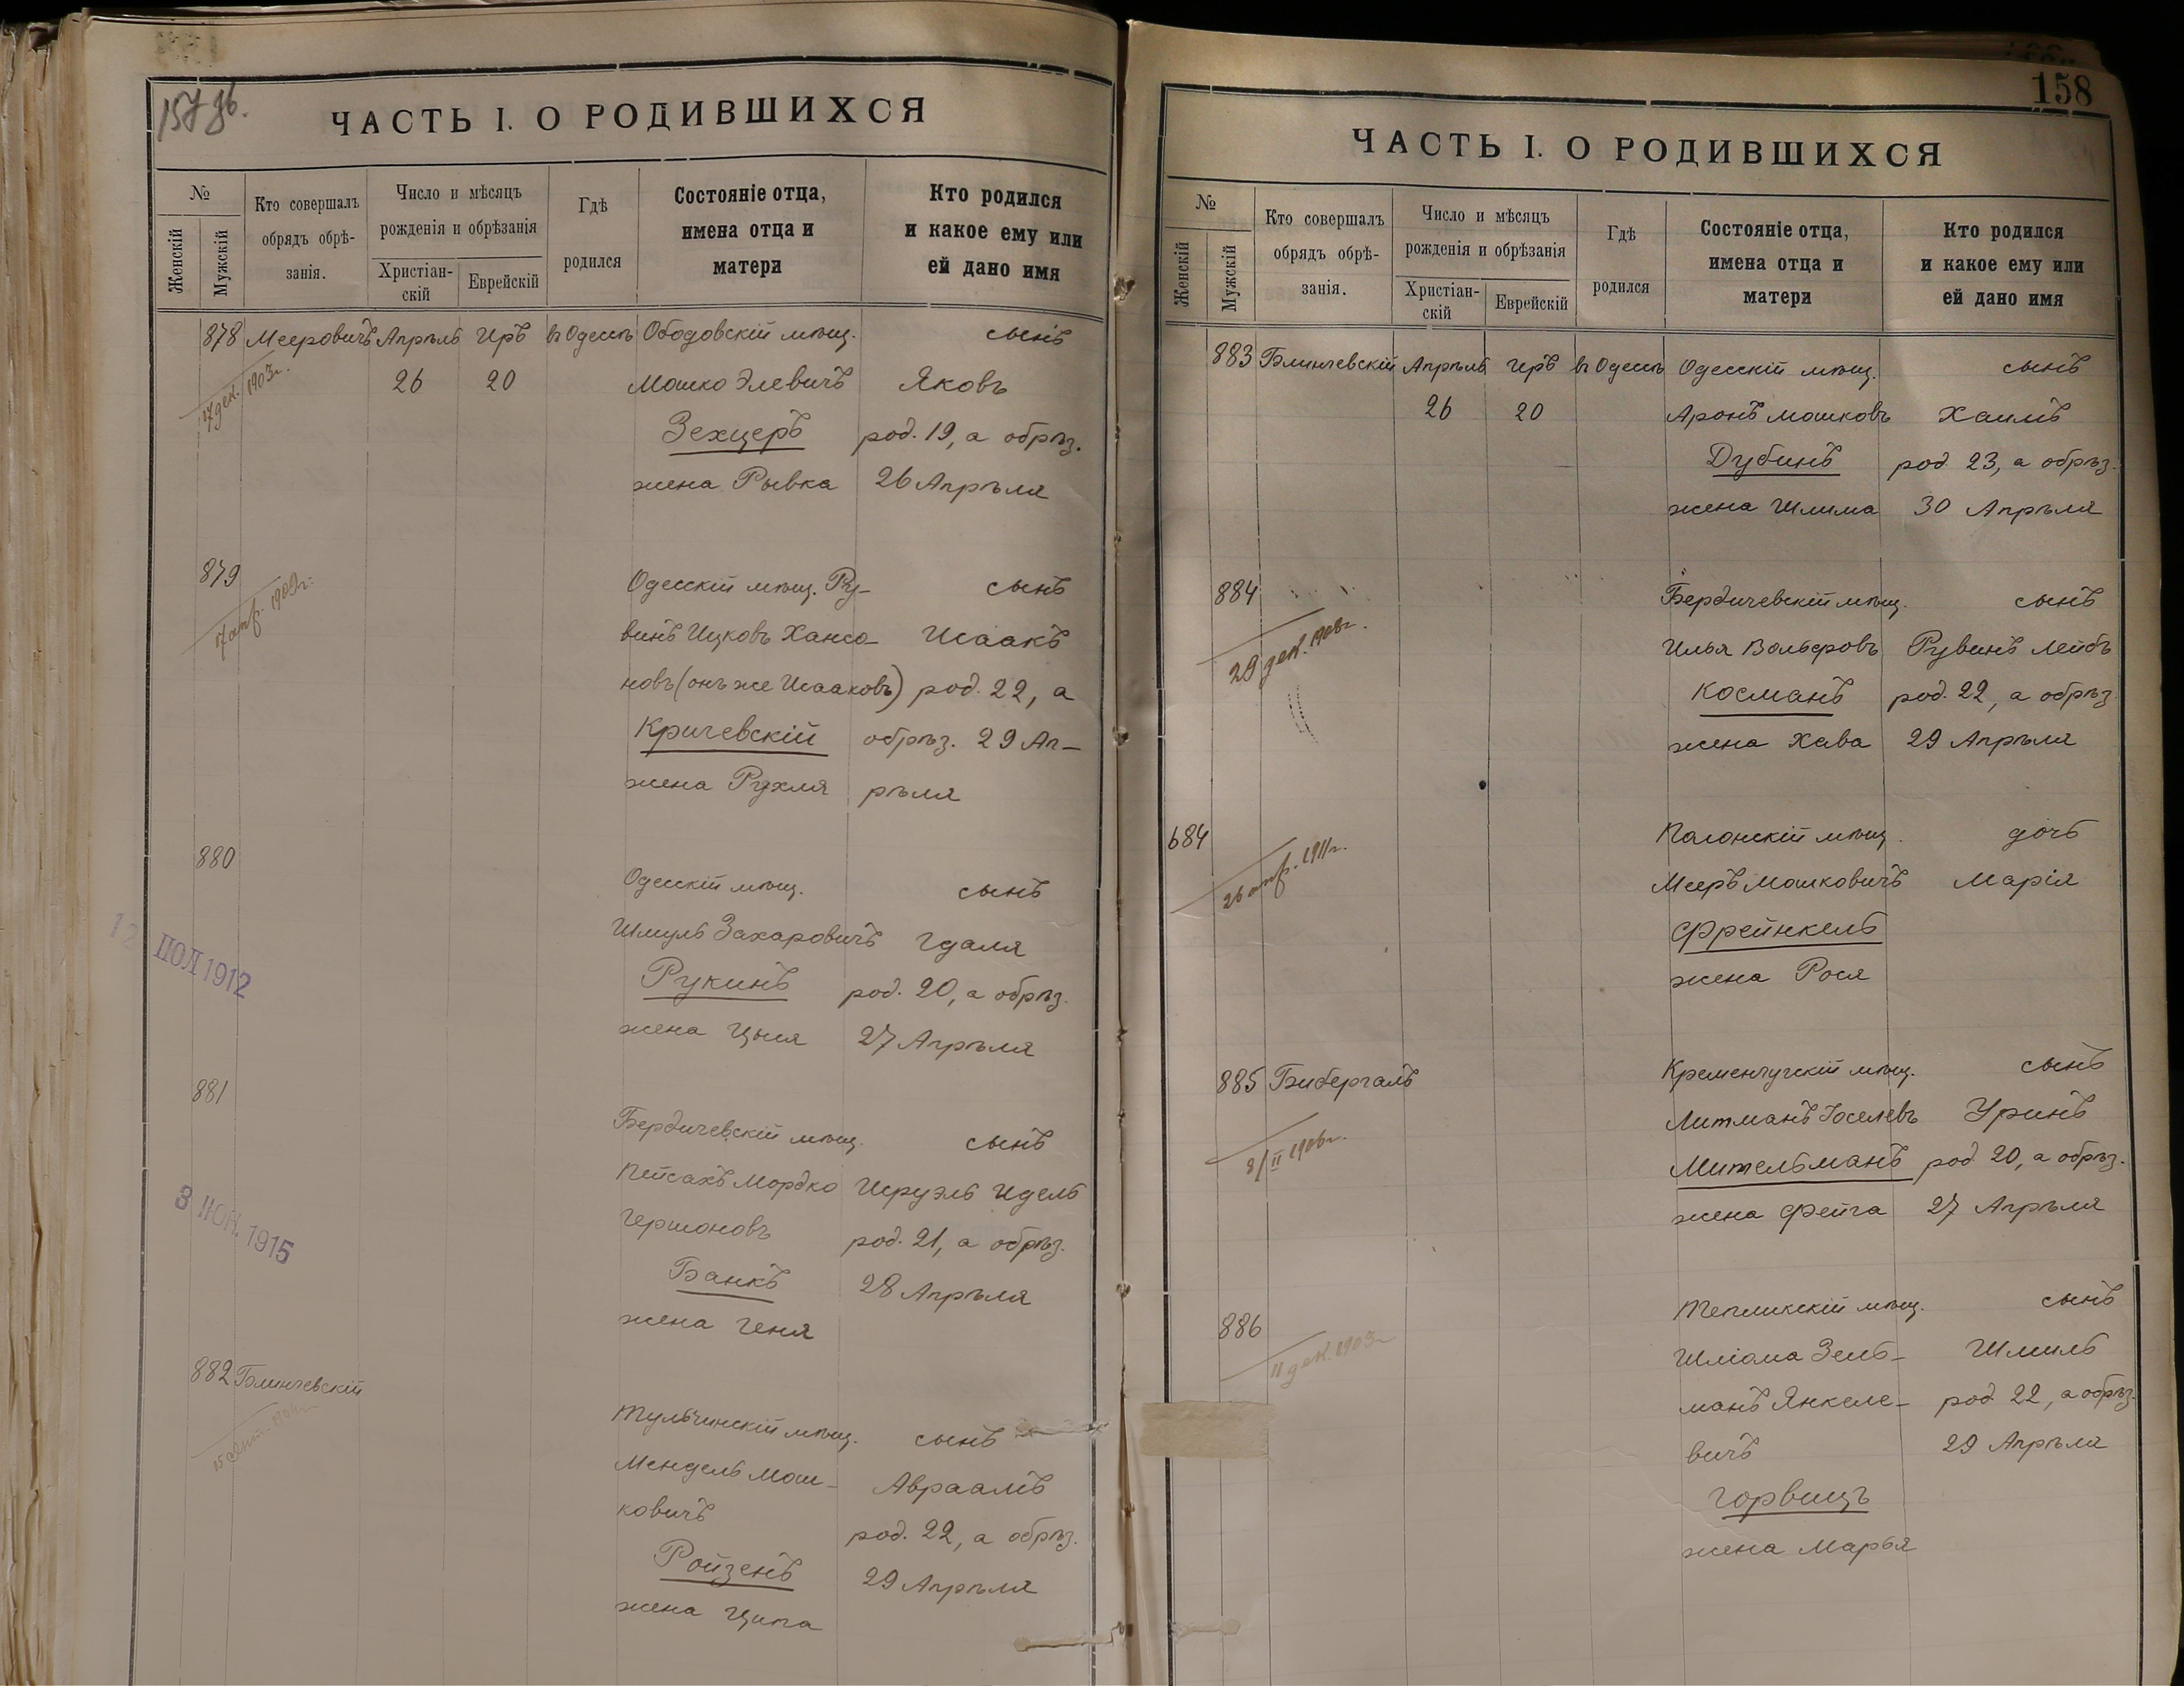 157 об.
ЧАСТЬ I. О РОДИВШИХСЯ
№
Женскій
Мужскій
Кто совершалъ
обрядъ обрѣ-
занія.
Число и мѣсяцъ
рожденія и обрѣзанія
Христіан-
скій
Еврейскій
Гдѣ
родился
Состояніе отца,
имена отца и
матери
Кто родился
и какое ему или
ей дано имя
878 Мееровичъ Апрѣль Иръ въ Одессѣ Ободовскій мѣщ. сынъ
17 дек. 1903 г. 26 20 Мошко Элевичъ Яковъ
Зехцеръ род. 19, а обрѣз.
жена Рывка 26 Апрѣля
879 Одесскій мѣщ. Ру- сынъ
17 апр. 1909 г. винъ Ицковъ Хансо- Исаакъ
новъ (онъ же Исааковъ) род. 22, а
Кричевскій обрѣз. 29 Ап-
жена Рухля рѣля
880 Одесскій мѣщ. сынъ
Шмуль Захаровичъ Гдаля
12 ІЮЛ 1912
Рукинъ род. 20, а обрѣз.
жена Цыпя 27 Апрѣля
881 Бердичевскій мѣщ. сынъ
Пейсахъ Мордко Исруэль Идель
3 ІЮН. 1915
Гершоновъ род. 21, а обрѣз.
Банкъ 28 Апрѣля
жена Геня
882 Блинчевскій Тульчинскій мѣщ. сынъ
15 сент. Мендель Мош- Авраамъ
ковичъ род. 22, а обрѣз.
Ройзенъ 29 Апрѣля
жена Ципа
158
ЧАСТЬ I. О РОДИВШИХСЯ
№
Женскій
Мужскій
Кто совершалъ
обрядъ обрѣ-
занія.
Число и мѣсяцъ
рожденія и обрѣзанія
Христіан-
скій
Еврейскій
Гдѣ
родился
Состояніе отца,
имена отца и
матери
Кто родился
и какое ему или
ей дано имя
883 Блинчевскій Апрѣль Иръ въ Одессѣ Одесскій мѣщ. сынъ
26 20 Аронъ Мошковъ Хаимъ
Дубинъ род. 23, а обрѣз.
жена Шлима 30 Апрѣля
884 Бердичевскій мѣщ. сынъ
29 дек. 1908 г. Илья Вольфовъ Рувинъ Лейбъ
Косманъ род. 22, а обрѣз.
жена Хава 29 Апрѣля
684 Полонскій мѣщ. дочь
26 апр. 1911 г. Мееръ Мошковичъ Марія
Фрейнкель
жена Рося
885 Бибергалъ Кременчугскій мѣщ. сынъ
Литманъ Іоселевъ Уринъ
8/II 1906 г. Мительманъ род. 20, а обрѣз.
жена Фейга 27 Апрѣля
886 Тепликскій мѣщ. сынъ
11 дек. 1903 г. Шліома Зель- Шмиль
манъ Янкеле- род. 22, а обрѣз.
вичъ 29 Апрѣля
Горвицъ
жена Марья